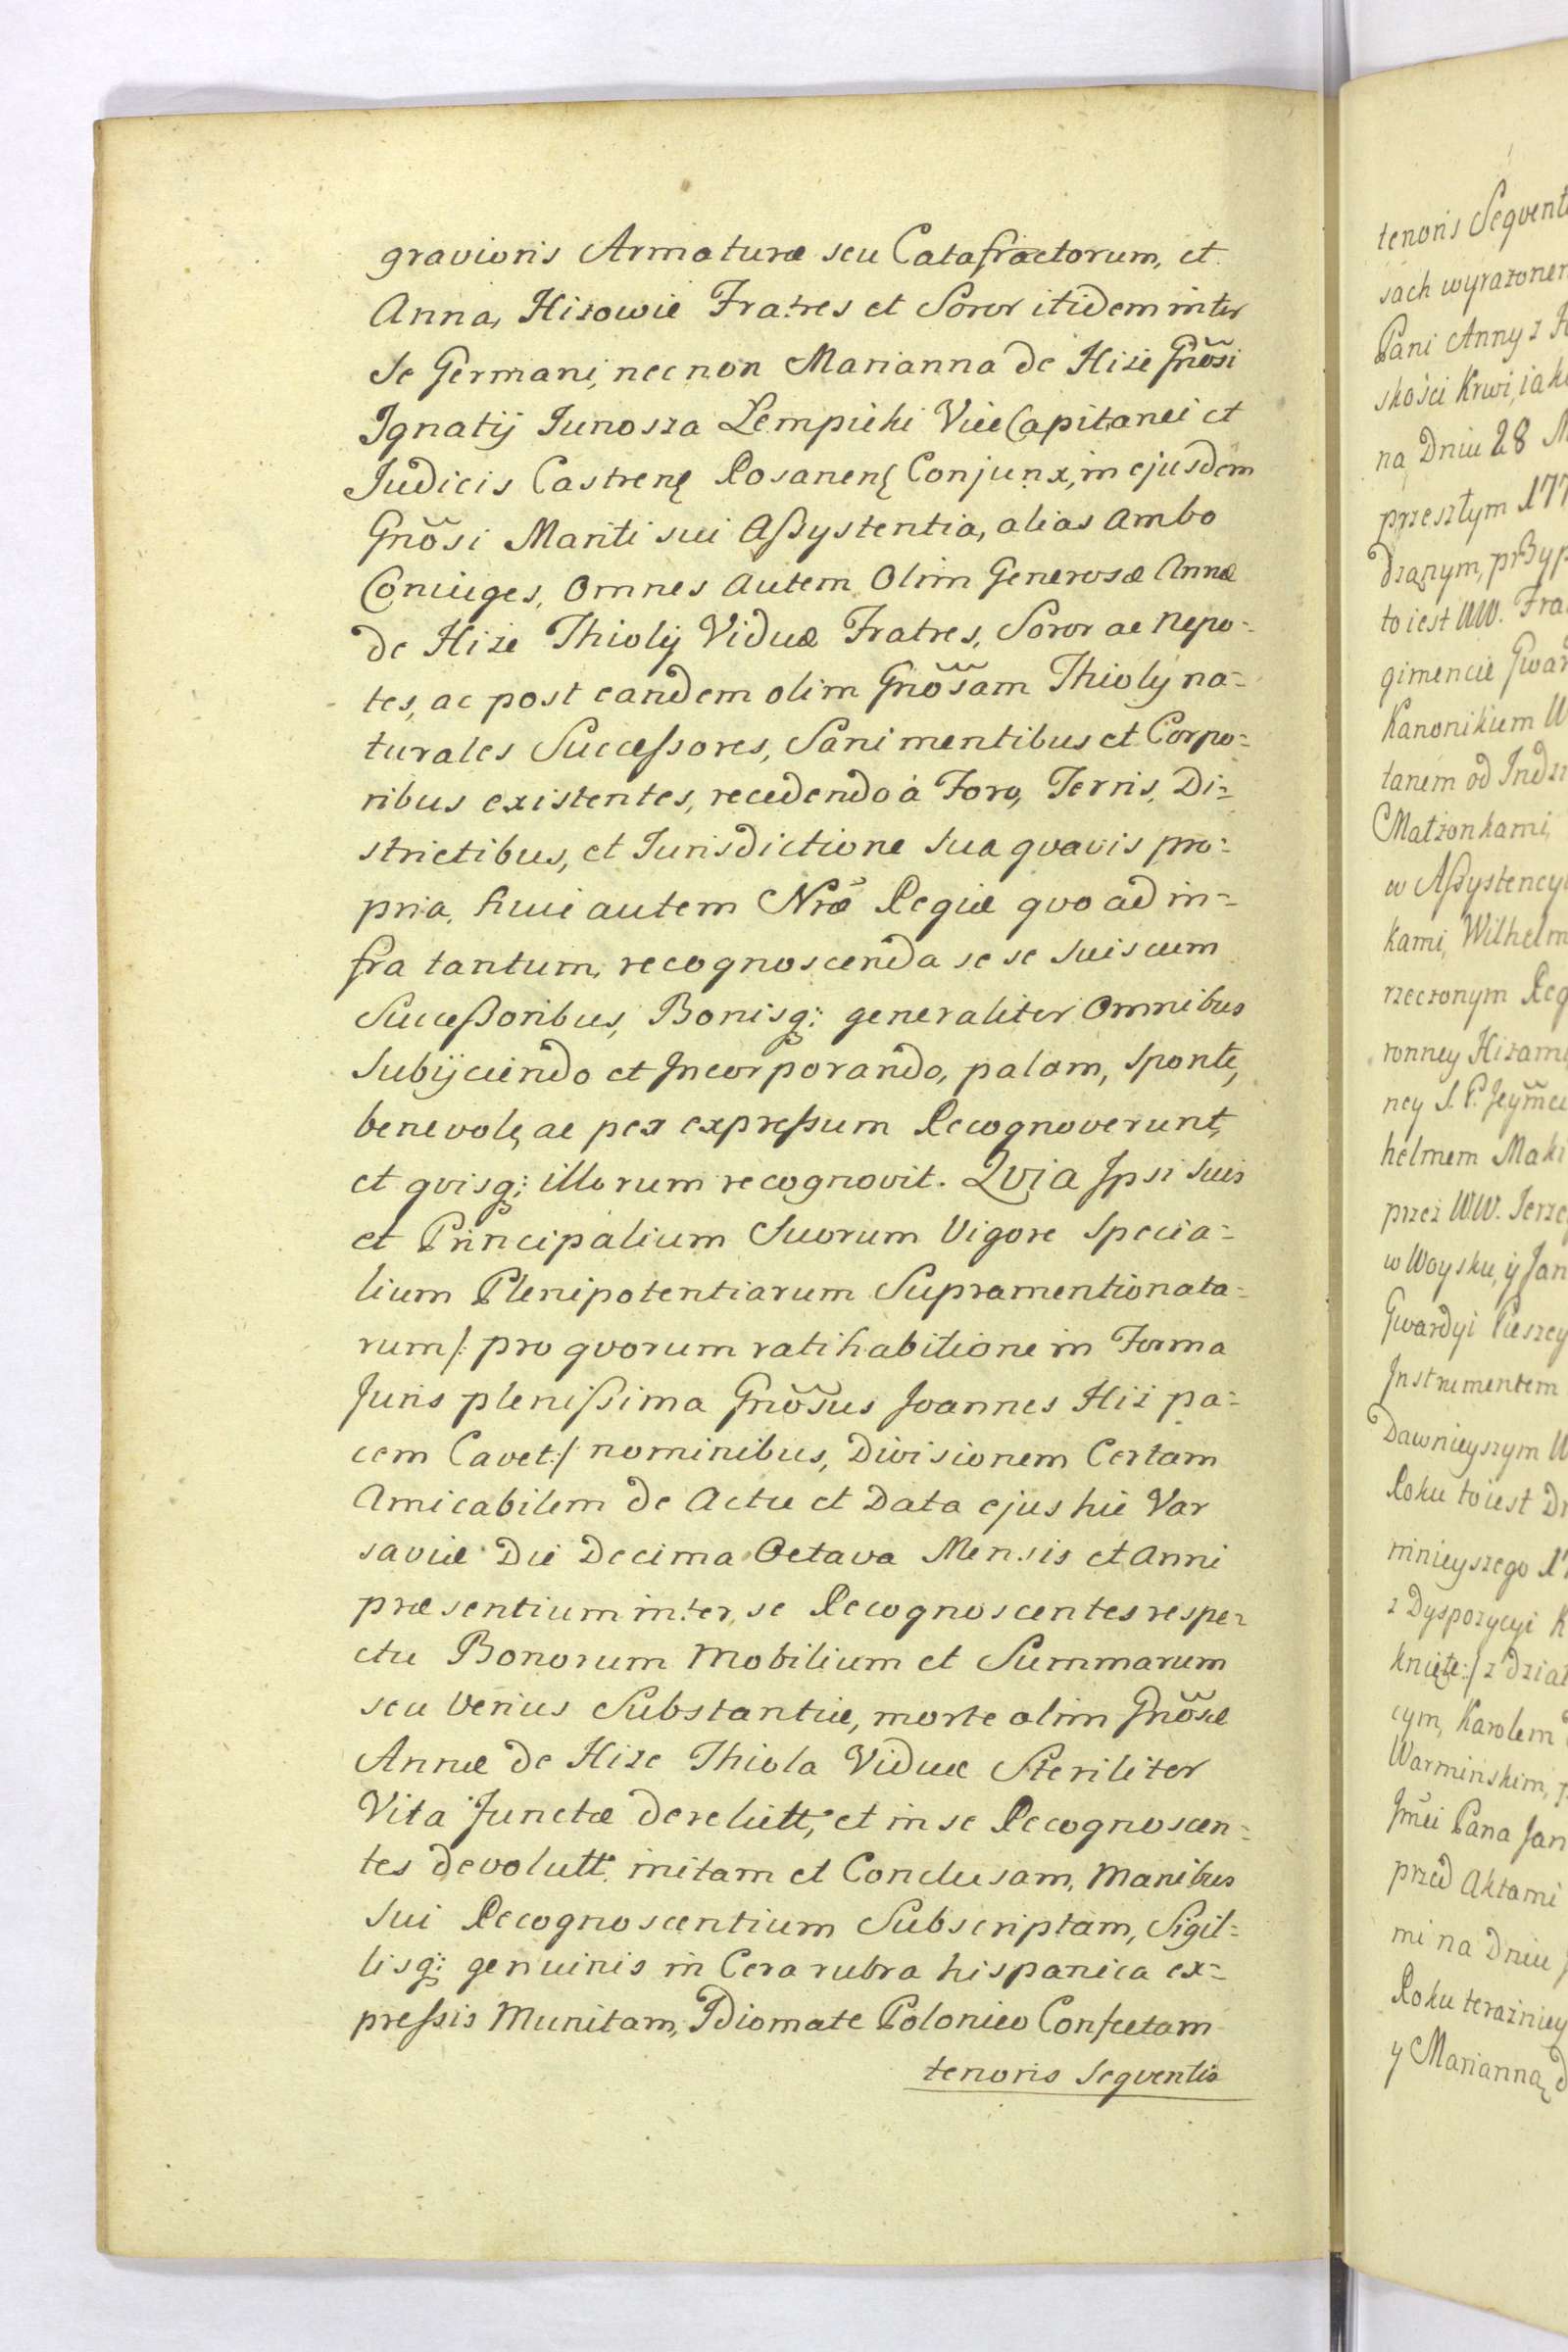 gravioris Armaturæ seu Catafractorum, et
Anna, Hizowie Fratres et Soror itidem inter
se Germani, nec non Marianna de Hize Gnõsi
Ignatij Junosza Lempicki ViceCapitanei et
Judicis Castrenę Rosanenę Conjunx, in ejusdem
Gnõsi Mariti sui Aßystentia, alias ambo
Coniuges, Omnes autem Olim Generosæ Annæ
de Hize Thioly Viduæ Fratres, Soror ac Nepo=
tes, ac post eandem olim Gnõsam Thioly na=
turales Succeſsores, Sani mentibus et Corpo=
ribus existentes, recedendo à Foro, Terris, Di=
strictibus, et Jurisdictione sua qvavis pro=
pria, huic autem Nræ̃ Regiæ qvo ad in=
fra tantum, recognoscenda se se suis cum
Succeßoribus, Bonisq; generaliter Omnibus
Subijciendo et Incorporando, palam, sponte,
benevole, ac per expreſsum Recognoverunt,
et qvisq; illorum recognovit. Qvia Ipsi suis
et Principalium Suorum Vigore Specia=
lium Plenipotentiarum Supramentionata=
rum /: pro qvorum ratihabitione in Forma
Juris pleniſsima Gnõsus Joannes Hiz pa=
cem Cavet :/ nominibus, Divisionem Certam
Amicabilem de Actu et Data ejus hic Var
saviæ Die Decima Octava Mensis et Anni
præsentium inter se Recognoscentes respe=
ctu Bonorum Mobilium et Summarum
seu verius Substantiæ, morte olim Gnõsæ
Annæ de Hize Thiola Viduæ Steriliter
Vita Functæ derelictt, et in se Recognoscen=
tes devolutt. initam et Conclusam, Manibus
sui Recognoscentium Subscriptam, Sigil=
lisq; genuinis in Cera rubra hispanica ex=
preſsis Munitam, Idiomate Polonico Confectam
tenoris Seqventis
tenoris Seqventi
sach wyrażoner
Pani Anny z H
skości Krwi, iako
na Dniu 28 M
przeszłym 177
dzanym, prßyp
to iest WW. Fra
gimencie Gwar
Kanonikiem W
tanem od Indzi
Małżonkami,
w Aßystencyi
kami, Wilhelm
rzeczonym Reg
ronney Hizami
ney S. P. Jeym̃ci
helmem Maki
przez WW. Jerze
w Woysku, y Jan
Gwardyi Pieszey
Instrumentem
Dawnieyszym W
Roku to iest Dn
ninieyszego 17
z Dyspozycyi K
knięte :/ z dział
cym, Karolem
Warmińskim,
Jm̃ci Pana Jan
przed Aktami
mi na Dniu
Roku teraźniey
y Marianną d